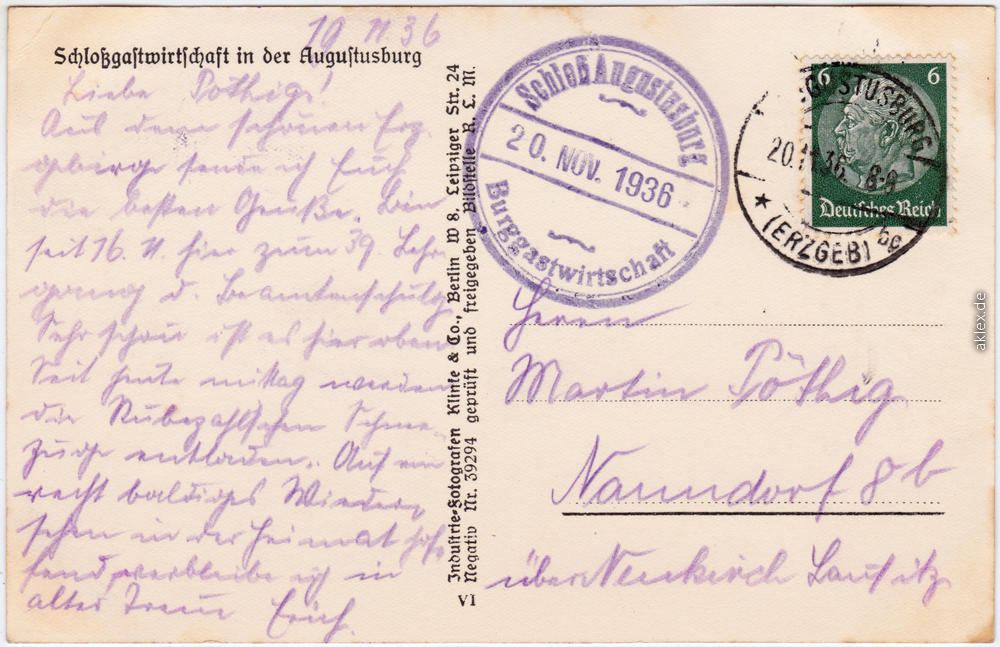 19 11. 36
Schloßgastwirtschaft in der Augustusburg
Liebe Pöthigs!
Aus dem schönen Erz-
gebirge sende ich Euch
die besten Grüße. Bin
seit 16. 11. hier zum 39. Lehr-
gang d. Beamtenschulg.
Sehr schön ist es hier oben
Seit heute mittag werden
die Rübezahlschen Schnee-
züge entladen. Auf ein
recht baldiges Wieder-
sehen in der Heimat hof-
fend, verbleibe ich in
alter Treue Erich.
Industrie-Fotografen Klinke & Co., Berlin W 8, Leipziger Str. 24
Negativ Nr. 39294 geprüft und freigegeben Bildstelle R. L. M.
VI
Schloß Augustusburg
20. NOV. 1936
Burggastwirtschaft
AUGUSTUSBURG
20.11.36. 8-9
★ (ERZGEB) bg
6 6
Deutsches Reich
Herrn
Martin Pöthig
Naundorf 8 b
über Neukirch Lausitz
aklex.de